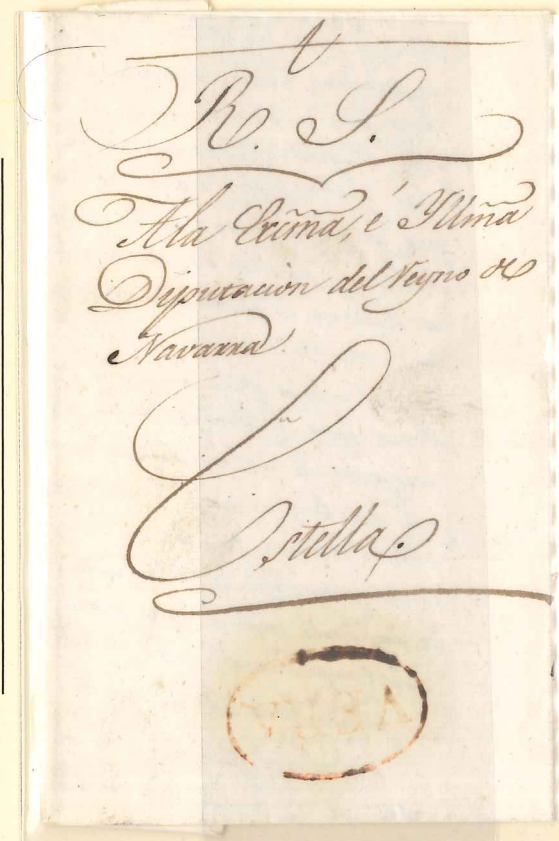 R. S.
A la Excm̃a, é Yllm̃a
Diputacion del Reyno de
Navarra
Estella.